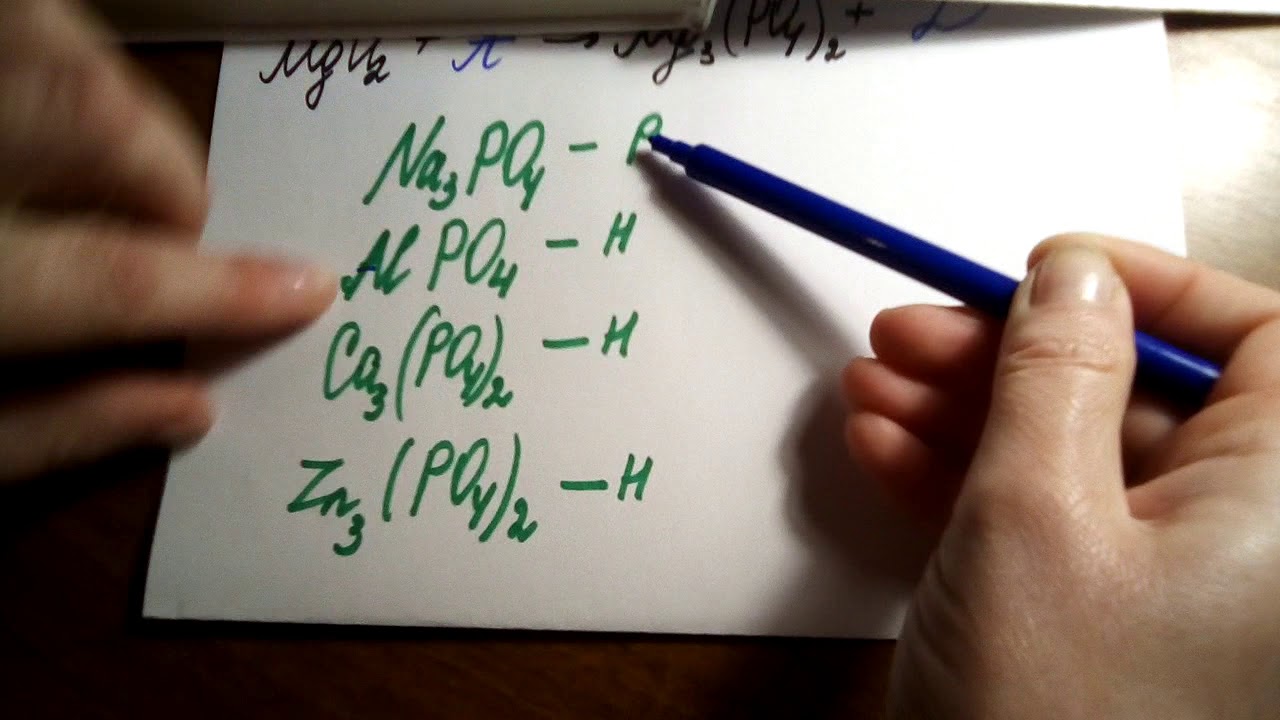 MgCl₂ + A → Mg₃(PO₄)₂ +
Na₃PO₄ – Р
AlPO₄ – Н
Ca₃(PO₄)₂ – Н
Zn₃(PO₄)₂ – Н